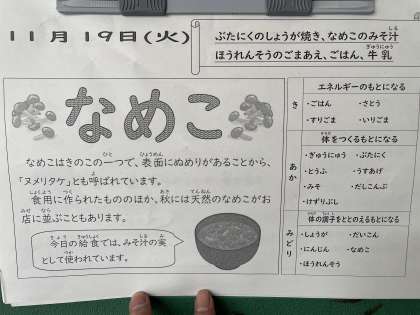 11月19日(火)
ぶたにくのしょうが焼き、なめこのみそ汁
ほうれんそうのごまあえ、ごはん、牛乳
なめこ
なめこはきのこの一つで、表面にぬめりがあることから、
「ヌメリタケ」とも呼ばれています。
食用に作られたもののほか、秋には天然のなめこがお
店に並ぶこともあります。
今日の給食では、みそ汁の実
として使われています。
き
エネルギーのもとになる
・ごはん ・さとう
・すりごま ・いりごま
あか
体をつくるもとになる
・ぎゅうにゅう ・ぶたにく
・とうふ ・うすあげ
・みそ ・だしこんぶ
・けずりぶし
みどり
体の調子をととのえるもとになる
・しょうが ・だいこん
・にんじん ・なめこ
・ほうれんそう